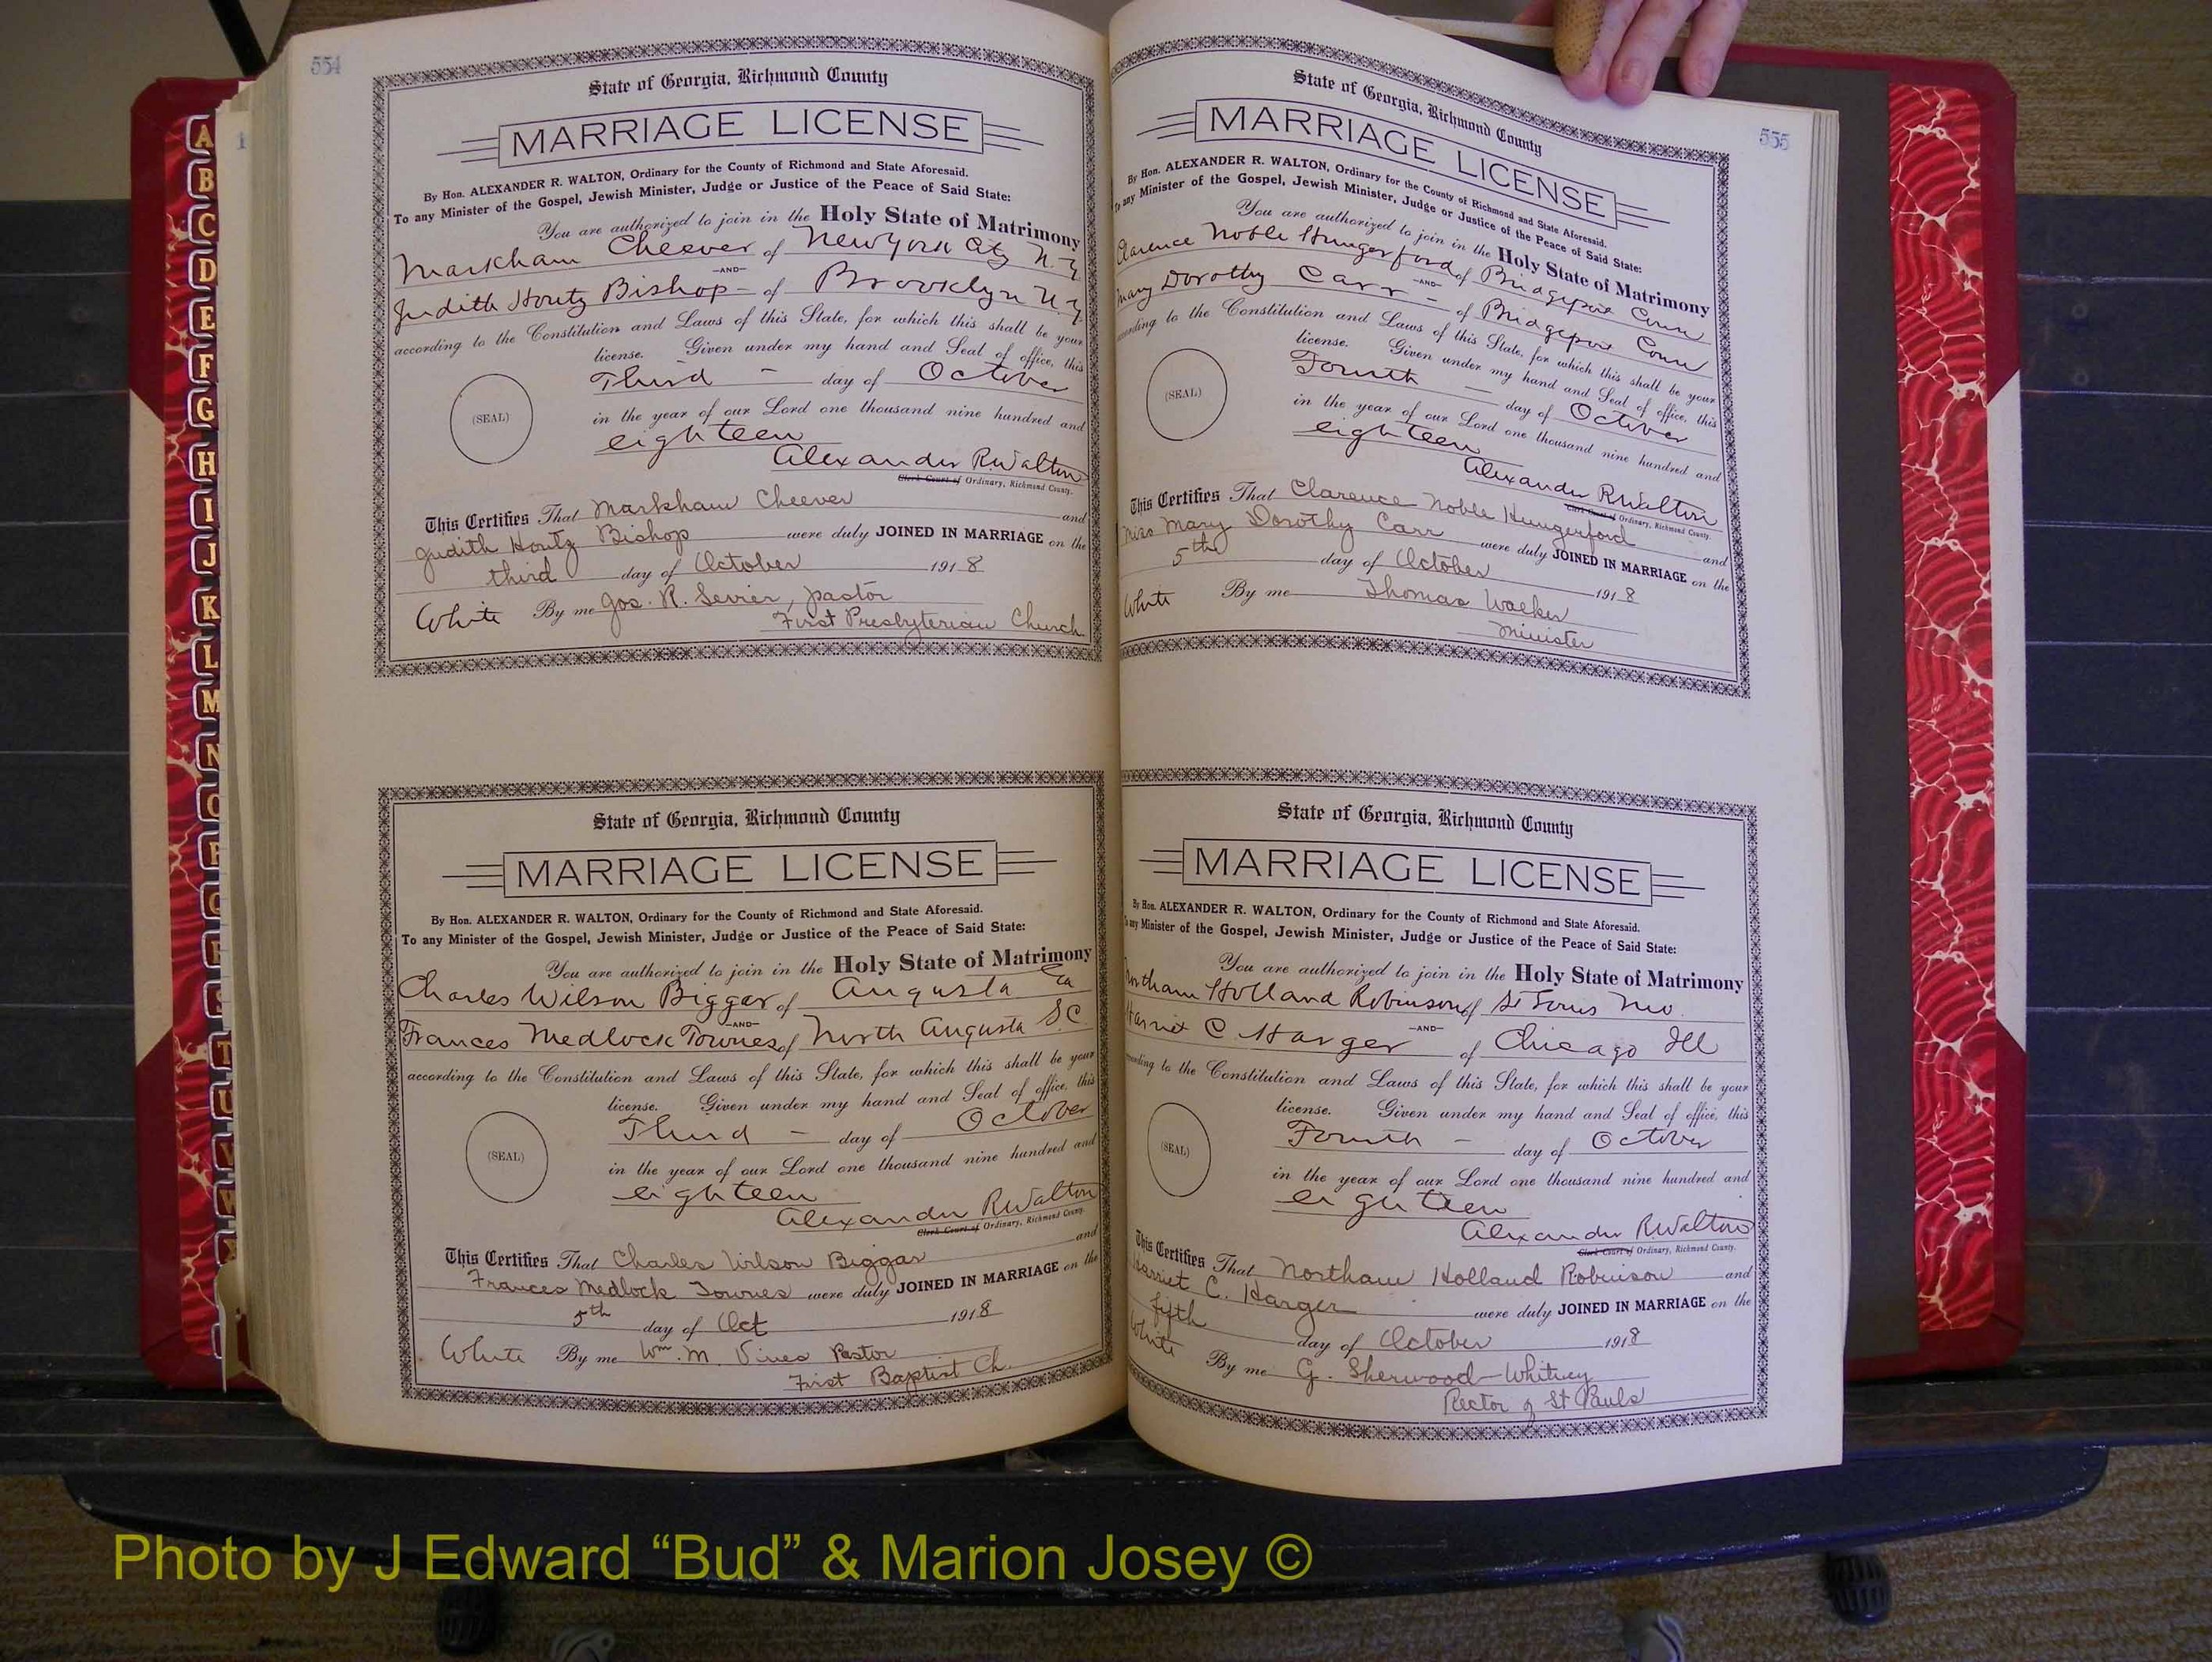 554
State of Georgia, Richmond County
MARRIAGE LICENSE
By Hon. ALEXANDER R. WALTON, Ordinary for the County of Richmond and State Aforesaid.
To any Minister of the Gospel, Jewish Minister, Judge or Justice of the Peace of Said State:
You are authorized to join in the Holy State of Matrimony
Markham Cheever of New York City N.Y.
—AND—
Judith Houtz Bishop - of Brooklyn N.Y.
according to the Constitution and Laws of this State, for which this shall be your
license. Given under my hand and Seal of office, this
Third - day of October
(SEAL)
in the year of our Lord one thousand nine hundred and
eighteen
Alexander R Walton
Clerk Court of Ordinary, Richmond County.
This Certifies That Markham Cheever and
Judith Houtz Bishop were duly JOINED IN MARRIAGE on the
third day of October 1918
White By me Jos. R. Sevier, pastor
First Presbyterian Church
State of Georgia, Richmond County
MARRIAGE LICENSE
By Hon. ALEXANDER R. WALTON, Ordinary for the County of Richmond and State Aforesaid.
To any Minister of the Gospel, Jewish Minister, Judge or Justice of the Peace of Said State:
You are authorized to join in the Holy State of Matrimony
Charles Wilson Biggar of Augusta Ga
—AND—
Frances Medlock Townes of North Augusta S.C.
according to the Constitution and Laws of this State, for which this shall be your
license. Given under my hand and Seal of office, this
Third - day of October
(SEAL)
in the year of our Lord one thousand nine hundred and
eighteen
Alexander R Walton
Clerk Court of Ordinary, Richmond County.
This Certifies That Charles Wilson Biggar and
Frances Medlock Townes were duly JOINED IN MARRIAGE on the
5th day of Oct 1918
White By me Wm. M. Vines Pastor
First Baptist Ch.
555
State of Georgia, Richmond County
MARRIAGE LICENSE
By Hon. ALEXANDER R. WALTON, Ordinary for the County of Richmond and State Aforesaid.
To any Minister of the Gospel, Jewish Minister, Judge or Justice of the Peace of Said State:
You are authorized to join in the Holy State of Matrimony
Clarence Noble Hungerford of Bridgeport Conn
—AND—
Mary Dorothy Carr - of Bridgeport Conn
according to the Constitution and Laws of this State, for which this shall be your
license. Given under my hand and Seal of office, this
Fourth - day of October
(SEAL)
in the year of our Lord one thousand nine hundred and
eighteen
Alexander R Walton
Clerk Court of Ordinary, Richmond County.
This Certifies That Clarence Noble Hungerford and
Miss Mary Dorothy Carr were duly JOINED IN MARRIAGE on the
5th day of October 1918
White By me Thomas Walker
Minister
State of Georgia, Richmond County
MARRIAGE LICENSE
By Hon. ALEXANDER R. WALTON, Ordinary for the County of Richmond and State Aforesaid.
To any Minister of the Gospel, Jewish Minister, Judge or Justice of the Peace of Said State:
You are authorized to join in the Holy State of Matrimony
Northam Holland Robinson of St Louis Mo.
—AND—
Harriet C Harger of Chicago Ill
according to the Constitution and Laws of this State, for which this shall be your
license. Given under my hand and Seal of office, this
Fourth - day of October
(SEAL)
in the year of our Lord one thousand nine hundred and
eighteen
Alexander R Walton
Clerk Court of Ordinary, Richmond County.
This Certifies That Northam Holland Robinson and
Harriet C. Harger were duly JOINED IN MARRIAGE on the
fifth day of October 1918
White By me G. Sherwood Whitney
Rector of St Pauls
A
B
C
D
E
F
G
H
I
J
K
L
M
N
O
P
Q
R
S
T
U
V
W
Photo by J Edward “Bud” & Marion Josey ©